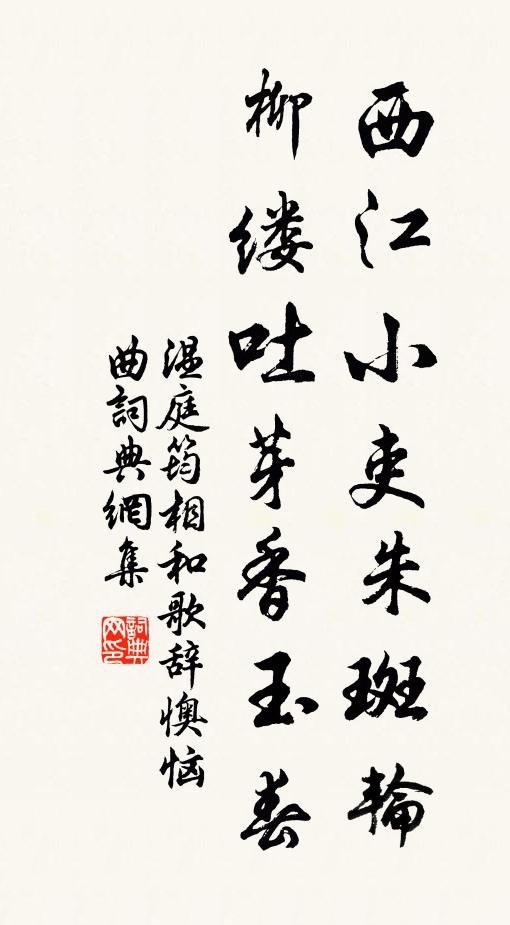 西江小吏朱斑輪
柳缕吐芽香玉春
温庭筠相和歌辞懊恼
曲詞典網集
詞典网印